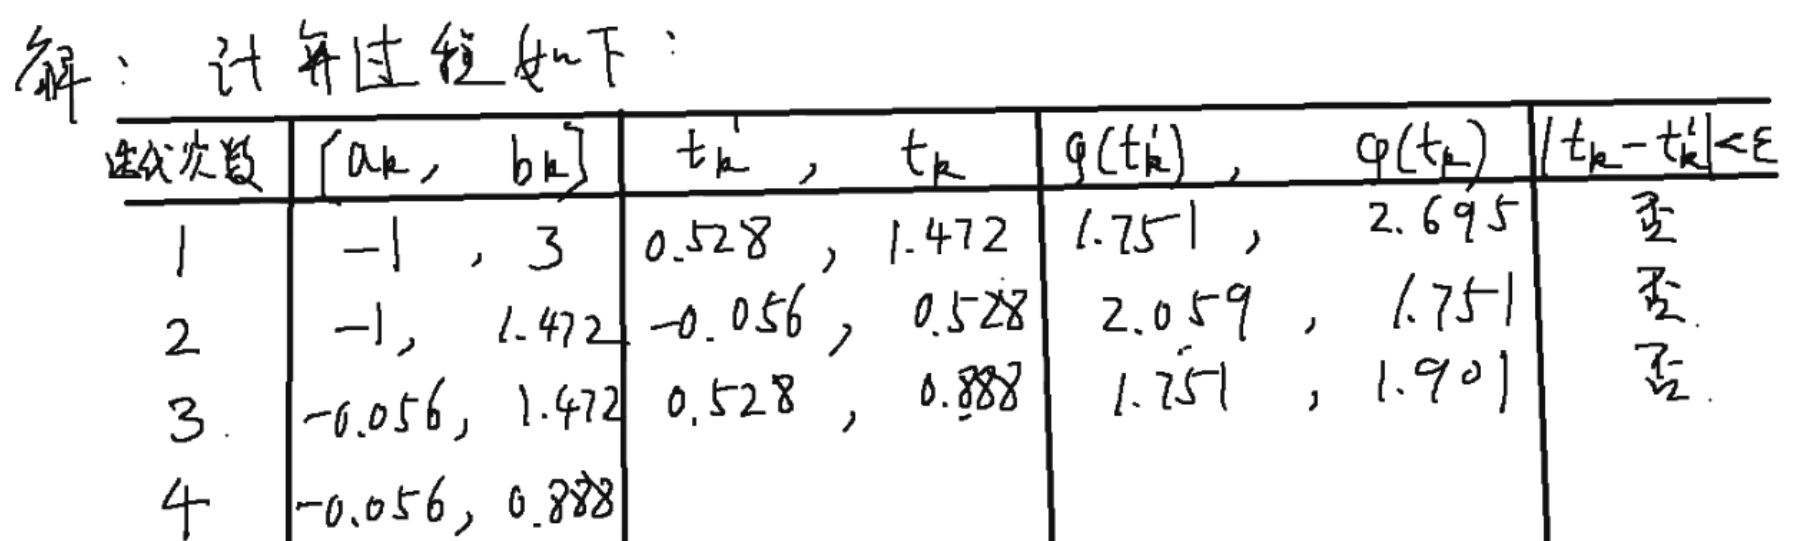 解：计算过程如下：
迭代次数 [aₖ, bₖ] tₖ', tₖ φ(tₖ'), φ(tₖ) |tₖ-tₖ'|<ε
1 -1, 3 0.528, 1.472 1.751, 2.695 否
2 -1, 1.472 -0.056, 0.528 2.059, 1.751 否.
3. -0.056, 1.472 0.528, 0.888 1.751, 1.901 否.
4 -0.056, 0.888